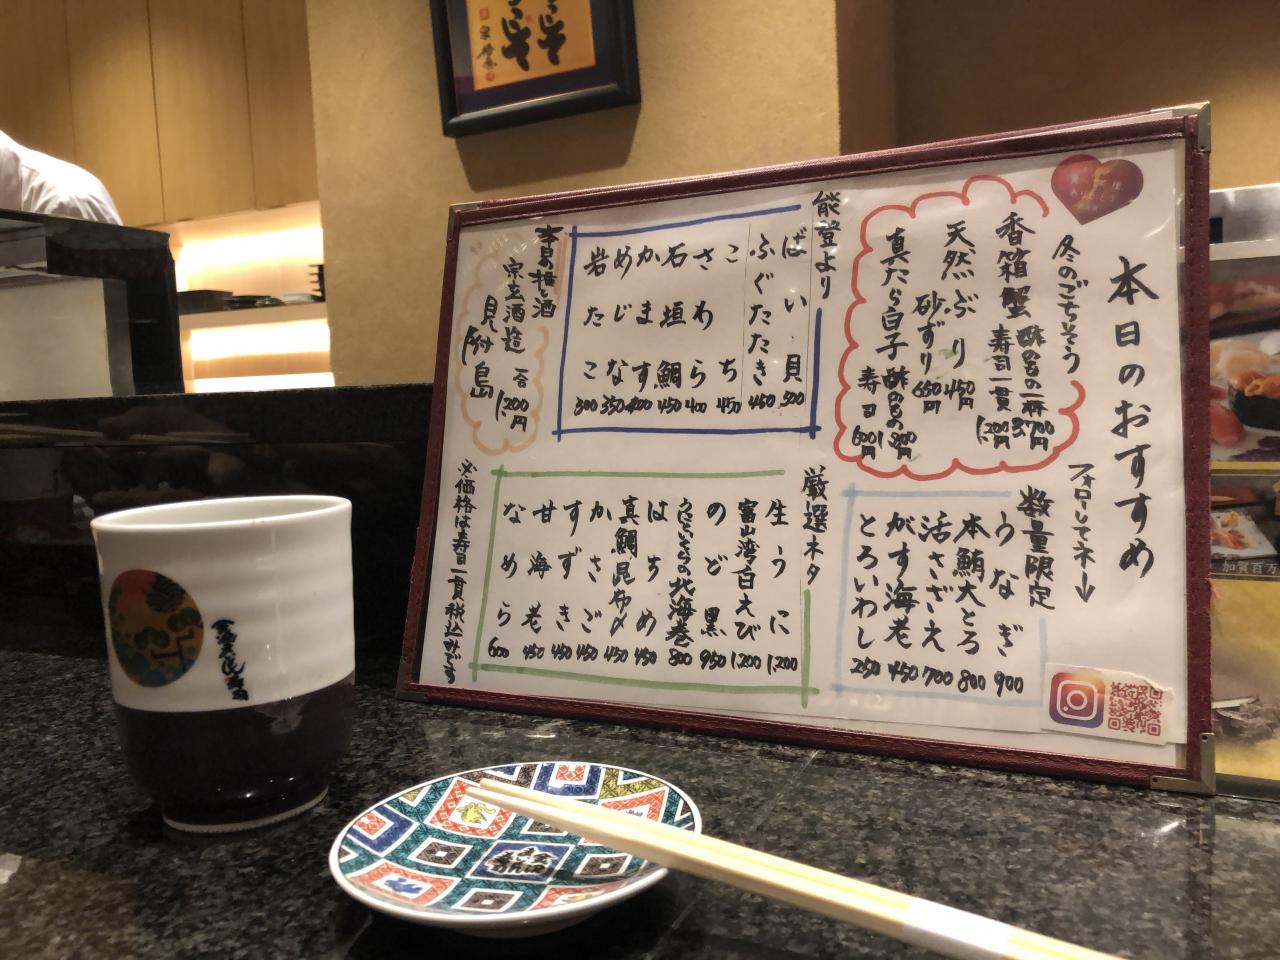 本日のおすすめ
フォローしてネ↓
冬のごちそう
香箱蟹 酢のもの一杯 3,700円
寿司一貫 1,200円
天然ぶり 450円
砂ずり 650円
真たら白子 酢のもの 800円
寿司 600円
数量限定
うなぎ 900
本鮪大とろ 800
活さざえ 700
がす海老 450
とろいわし 250
能登より
ばい貝 500
ふぐたたき 450
こち 450
さわら 400
石垣鯛 450
かます 400
めじな 350
岩たこ 300
厳選ネタ
生うに 1,200
富山湾白えび 1,200
のど黒 950
北海巻 800
はちめ 450
真鯛昆布〆 450
かさご 450
すずき 450
甘海老 450
なめら 600
宗玄酒造
見附島
一合 1,200円
※価格は寿司一貫税込みです
加賀百万